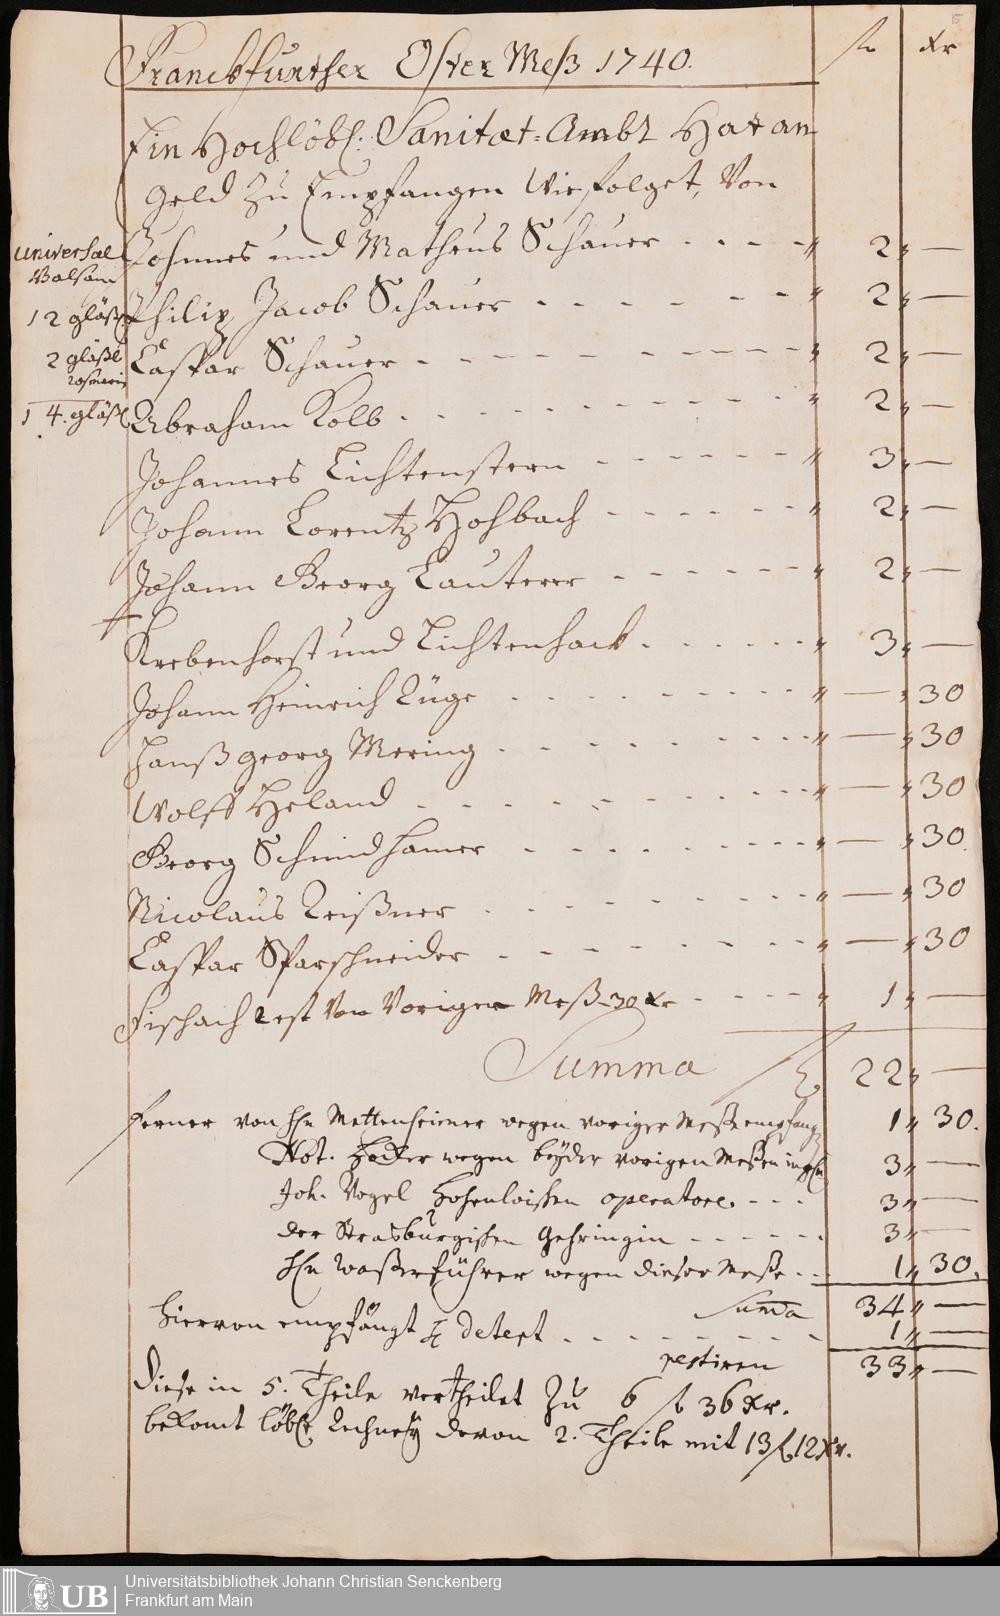 15
fl. Xr
Franckfurther Oster Meß 1740.
Ein Hochlöbl: Sanitæt=Ambt Hat an
Geld Zu Empfangen Wie folget, Von
universal
Balsam
12 gläßl
2 gläßl
rosmarin
14. gläßl
Johannes und Matheus Schauer . . . . " 2 " —
Philip Jacob Schauer - - - - - - " 2 " —
Caspar Schauer - - - - - - - - - " 2 " —
Abraham Kolb . - - - - - - - - - " 2 " —
Johannes Lichtenstern - - - - - - " 3 " —
Johann Lorentz Hohbach - - - - - - " 2 " —
Johann Georg Lauterer - - - - - - " 2 " —
Krebenhorst und Lichtenhack . - - - - - " 3 " —
Johann Heinrich Lüge . - - - - - - - " — " 30
Hanß georg Mering . - - - - - - - " — " 30
Wolff Heland . - - - - - - - - " — " 30
Georg Schmidhamer - - - - - - - - " — " 30
Nicolaus Reißner . - - - - - - - " — " 30
Caspar Sparschneider - - - - - - - " — " 30
Fischach rest Von Voriger Meß 30 Xr - - - - " 1 " —
Summa fl. 22 " —
ferner von Hn Mettenheimer wegen voriger Meße empfang 1 " 30.
Not. Hoder wegen beyder vorigen Meßen 3 " —
Joh. Vogel Hohenloischen operatore. - - - 3 " —
der Strasburgischen Gehringin - - - - - - 3 " —
Hn Waßerführer wegen dieser Meße. - - 1 " 30.
Suma 34 " —
hiervon empfängt H Detert . - - - - - - - - 1 " —
restiren 33 " —
Diese in 5. Theile vertheilet Zu 6 fl 36 Xr.
bekomt löbl Rechney davon 2. Theile mit 13 fl. 12 Xr.
UB
Universitätsbibliothek Johann Christian Senckenberg
Frankfurt am Main